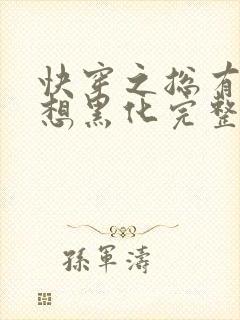 快穿之总有
想黑化完整
孫軍濤